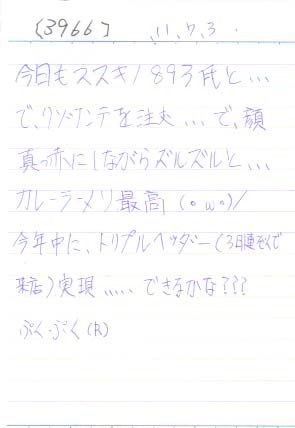 (3966) '11.7.3.
今日もススキノ893氏と...
で、クソ\タンテを注文...で、顔
真っ赤にしながらズルズルと...
カレーラーメソ最高(。ω。)/
今年中に、トリプルヘッダー(3日連ぞくで
来店)実現.....できるかな???
ぷく・ぷく(R)